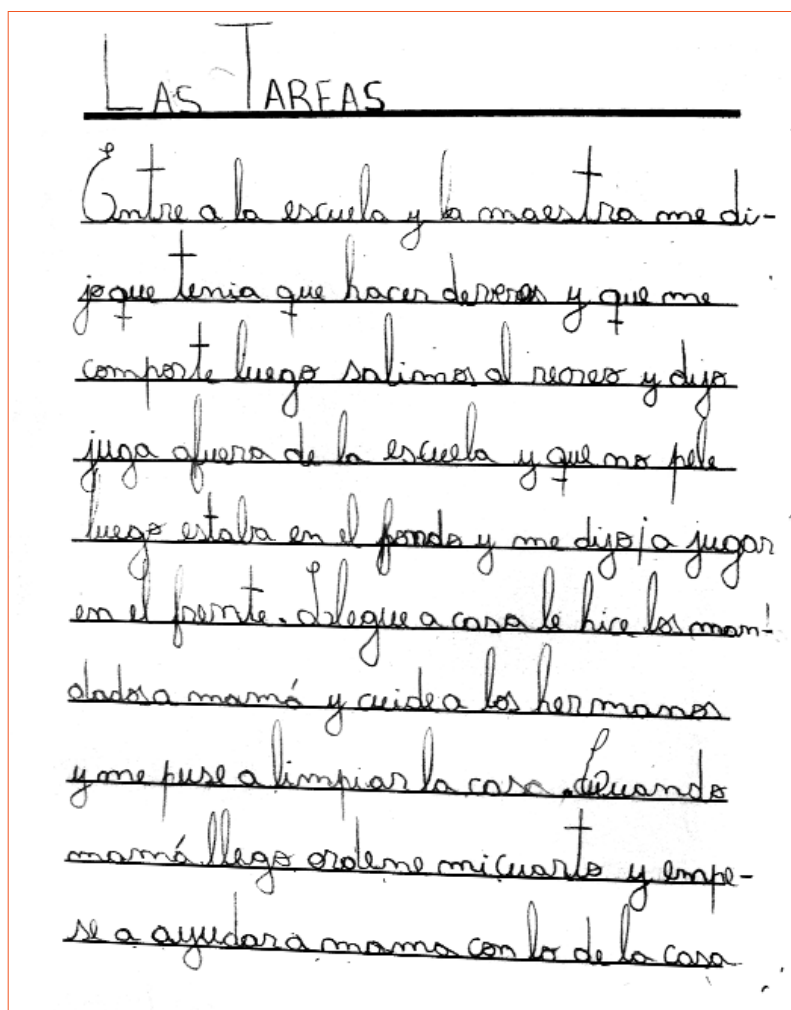 LAS TAREAS
Entre a la escuela y la maestra me di-
joque tenia que hacer deveres y que me
comporte luego salimos al recreo y dijo
juga afuera de la escuela y que no pele
luego estaba en el fondo y me dijo a jugar
en el frente. Llegue a casa le hice los man-
dadosa mamá y cuide a los hermanos
y me puse a limpiar la casa. Cuando
mamá llego ordene micuarto y empe-
se a ayudara mama con lo de la casa